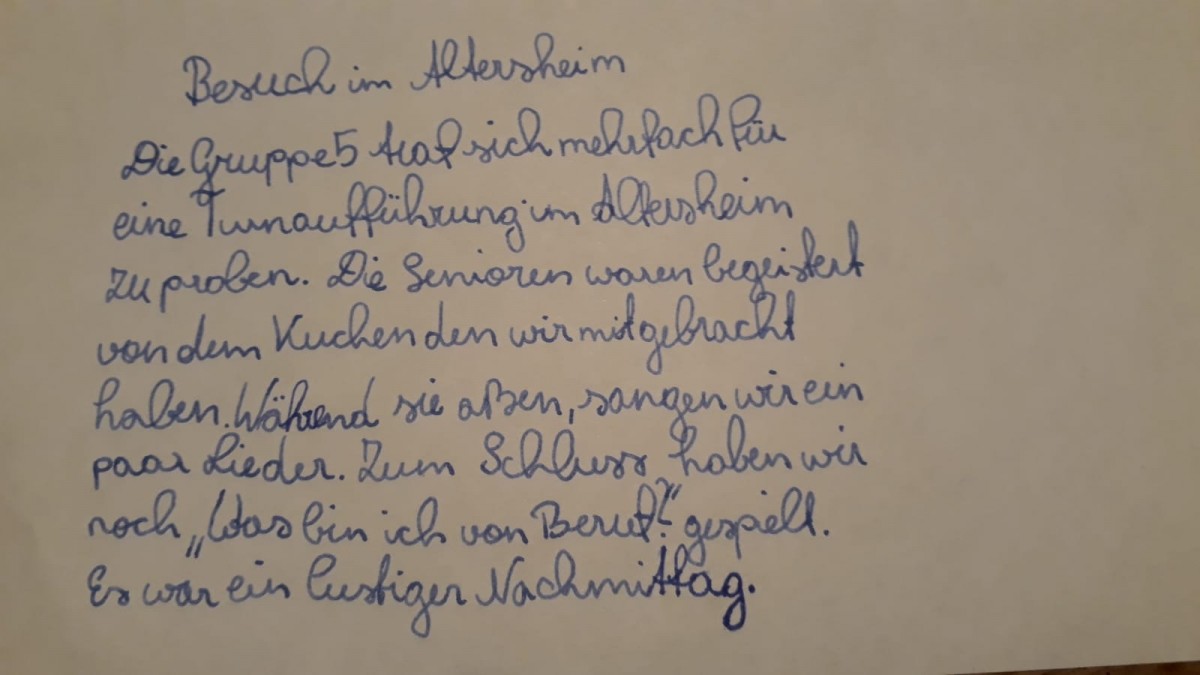 Besuch im Altersheim
Die Gruppe 5 traf sich mehrfach für
eine Turnaufführung im Altersheim
zu proben. Die Senioren waren begeistert
von dem Kuchen den wir mitgebracht
haben. Während sie aßen, sangen wir ein
paar Lieder. Zum Schluss haben wir
noch „Was bin ich von Beruf?“ gespielt.
Es war ein lustiger Nachmittag.